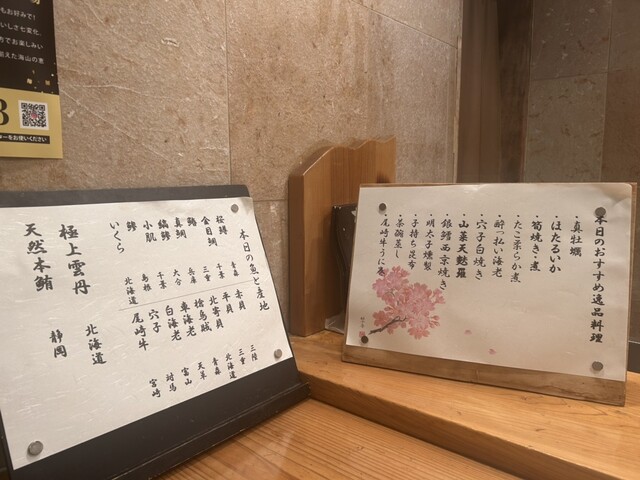 もお好みで!
いしさ七変化、
でお楽しみい
揃えた海山の恵
3
ーをお使いください
本日の魚と産地
桜鱒 青森
金目鯛 千葉
鰆 三重
真鯛 兵庫
縞鯵 大分
小肌 千葉
鯵 島根
いくら 北海道
赤貝 三陸
平貝 三重
北寄貝 北海道
槍烏賊 青森
車海老 天草
白海老 富山
穴子 対馬
尾崎牛 宮崎
極上雲丹 北海道
天然本鮪 静岡
本日のおすすめ逸品料理
・真牡蠣
・ほたるいか
・筍焼き・煮
・たこ柔らか煮
・酔っ払い海老
・穴子白焼き
・山菜天麩羅
・銀鱈西京焼き
・明太子燻製
・子持ち昆布
・茶碗蒸し
・尾崎牛うに巻